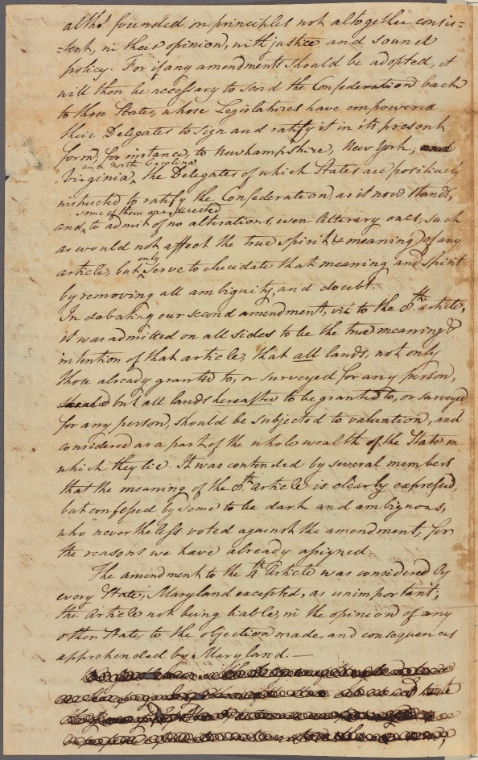 altho' founded on principles not altogether consis-
-tent, in their opinion, with justice and sound
policy. For if any amendments should be adopted, it
will then be necessary to send the Confederation back
to those States, whose Legislatures have empowered
their Delegates to sign and ratify it in its present
form, for instance, to Newhampshire, New York, and
and North Carolina
Virginia, the Delegates of which States are positively
instructed to ratify the Confederation, as it now stands,
some of them are directed
and, to admit of no alterations, even literary ones, such
as would not affect the true spirit & meaning of any
only
article, but serve to elucidate that meaning and spirit
by removing all ambiguity, and doubt.
In debating our second amendment, viz to the 8th article,
it was admitted on all sides to be the true meaning &
intention of that article, that all lands, not only
those already granted to, or surveyed for any person,
but all lands hereafter to be granted to, or surveyed
for any person, should be subjected to valuation, and
considered as a part of the whole wealth of the State in
which they lie. It was contended by several members
that the meaning of the 8th article is clearly expressed,
but confessed by some to be dark and ambiguous,
who never the less voted against the amendment, for
the reasons we have already assigned.
The amendment to the 4th Article was considered by
every State, Maryland excepted, as unimportant;
the Article not being liable, in the opinion of any
other State to the objection made, and consequences
apprehended by Maryland.—